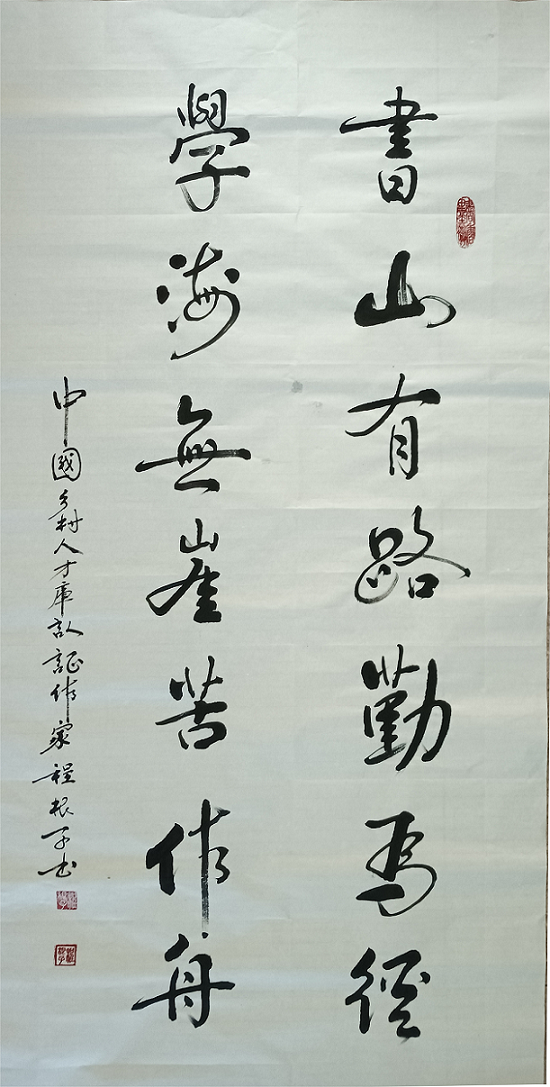 書山有路勤為徑
學海無崖苦作舟
中國乡村人才庫认証作家程根子书